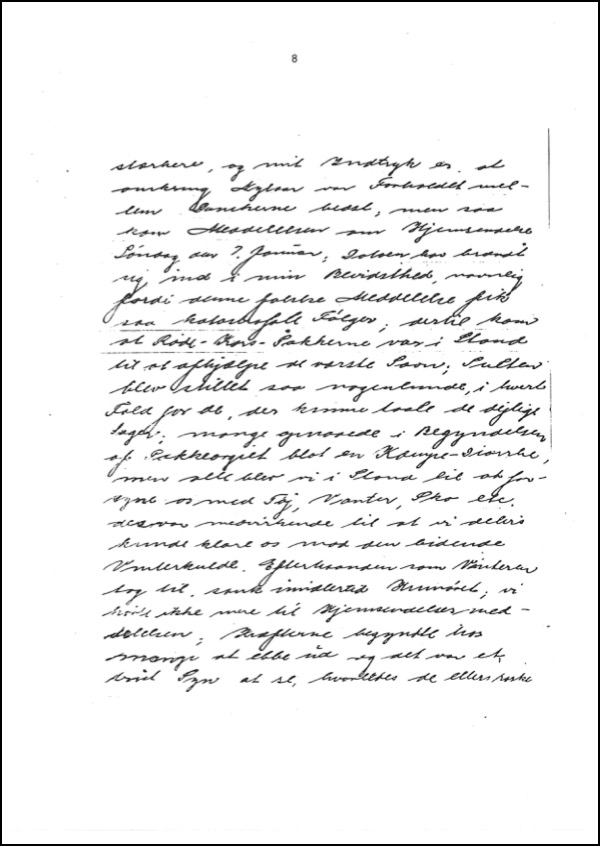 8
stærkere, og mit Indtryk er, at
omkring Nytaar var Forholdet mel-
lem Danskerne bedst, men saa
kom Meddelelsen om Hjemsendelse
Søndag den 7. Januar, Datoen har brændt
sig ind i min Bevidsthed, navnlig
fordi denne falske Meddelelse fik
saa katastrofale Følger; dertil kom
at Røde-Kors-Pakkerne var i Stand
til at afhjælpe de værste Savn; Sulten
blev stillet saa nogenlunde, i hvert
Fald for de, der kunne taale de dejlige
Sager; mange opnaaede i Begyndelsen
af Pakkeorgiet blot en Kæmpe-Diarrhe,
men alle blev vi i Stand til at for-
syne os med Tøj, Vanter, Sko etc.
der var medvirkende til at vi delvis
kunde klare os mod den bidende
Vinterkulde. Efterhaanden som Vinteren
tog til, sank imidlertid Humøret; vi
troede ikke mere til Hjemsendelsesmed-
delelsen; Kræfterne begyndte hos
mange at ebbe ud og det var et
trist Syn at se, hvorledes de ellers raske